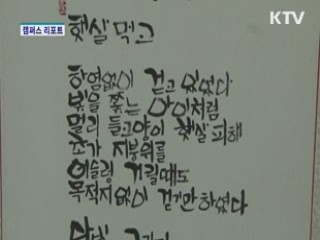 캠퍼스 리포트
KTV
햇살 먹고
하염없이 걷고 있었다
빛을 쫓는 아이처럼
멀리 들고양이 햇살 피해
초가 지붕위를
어슬렁 거릴때도
목적지없이 걷기만 하였다